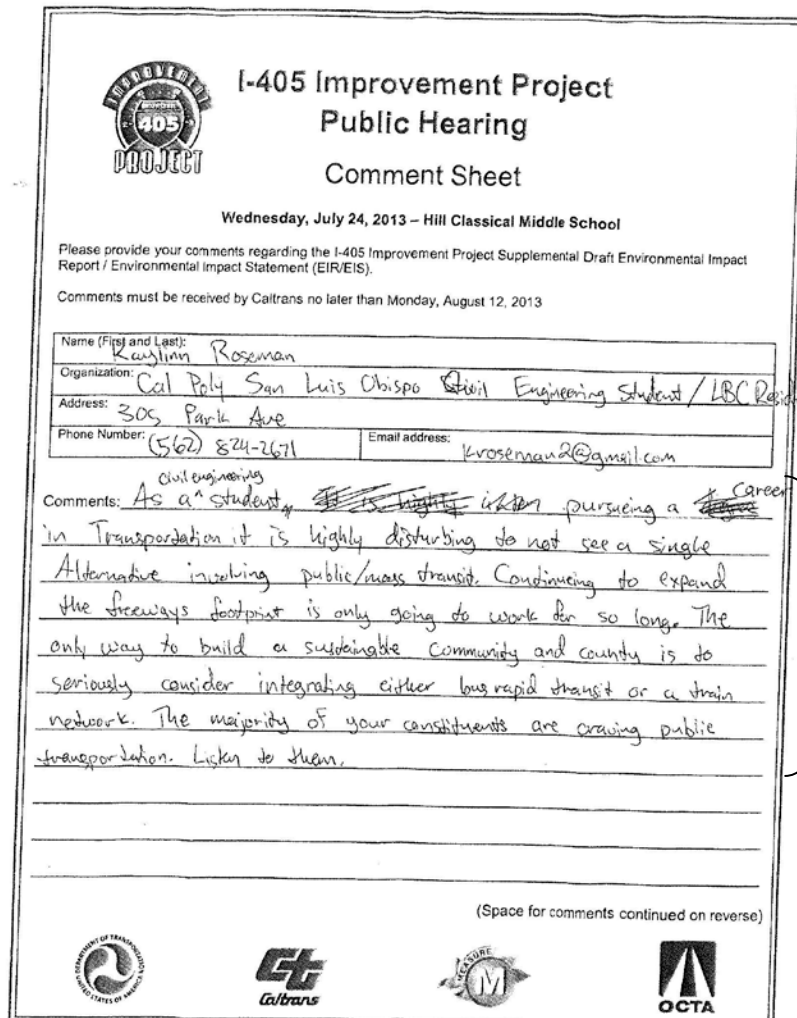 IMPROVEMENT
405
PROJECT
I-405 Improvement Project
Public Hearing
Comment Sheet
Wednesday, July 24, 2013 – Hill Classical Middle School
Please provide your comments regarding the I-405 Improvement Project Supplemental Draft Environmental Impact
Report / Environmental Impact Statement (EIR/EIS).
Comments must be received by Caltrans no later than Monday, August 12, 2013
Name (First and Last):
Kaylinn Roseman
Organization: Cal Poly San Luis Obispo Civil Engineering Student / LBC Resid
Address: 305 Park Ave
Phone Number: (562) 824-2671 Email address: kroseman2@gmail.com
civil engineering
Comments: As a ^ student, pursueing a career
in Transportation it is highly disturbing to not see a single
Alternative involving public/mass transit. Continueing to expand
the freeways footprint is only going to work for so long. The
only way to build a sustainable community and county is to
seriously consider integrating either bus rapid transit or a train
network. The majority of your constituents are craving public
transportation. Listen to them.
(Space for comments continued on reverse)
DEPARTMENT OF TRANSPORTATION
UNITED STATES OF AMERICA
Caltrans
MEASURE
M
OCTA